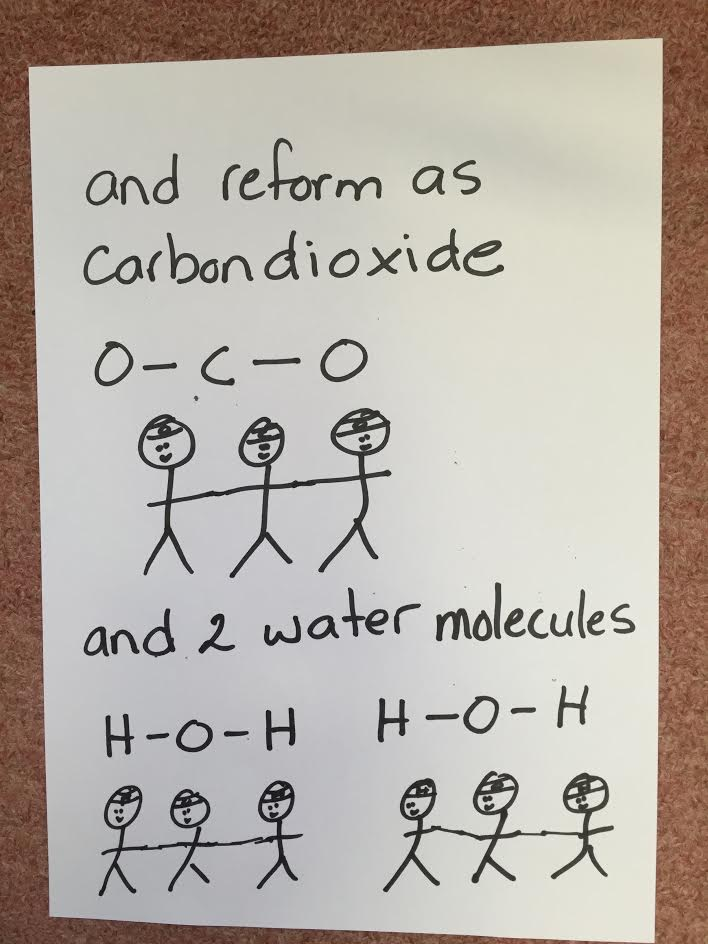 and reform as
carbondioxide
O – C – O
and 2 water molecules
H – O – H H – O – H